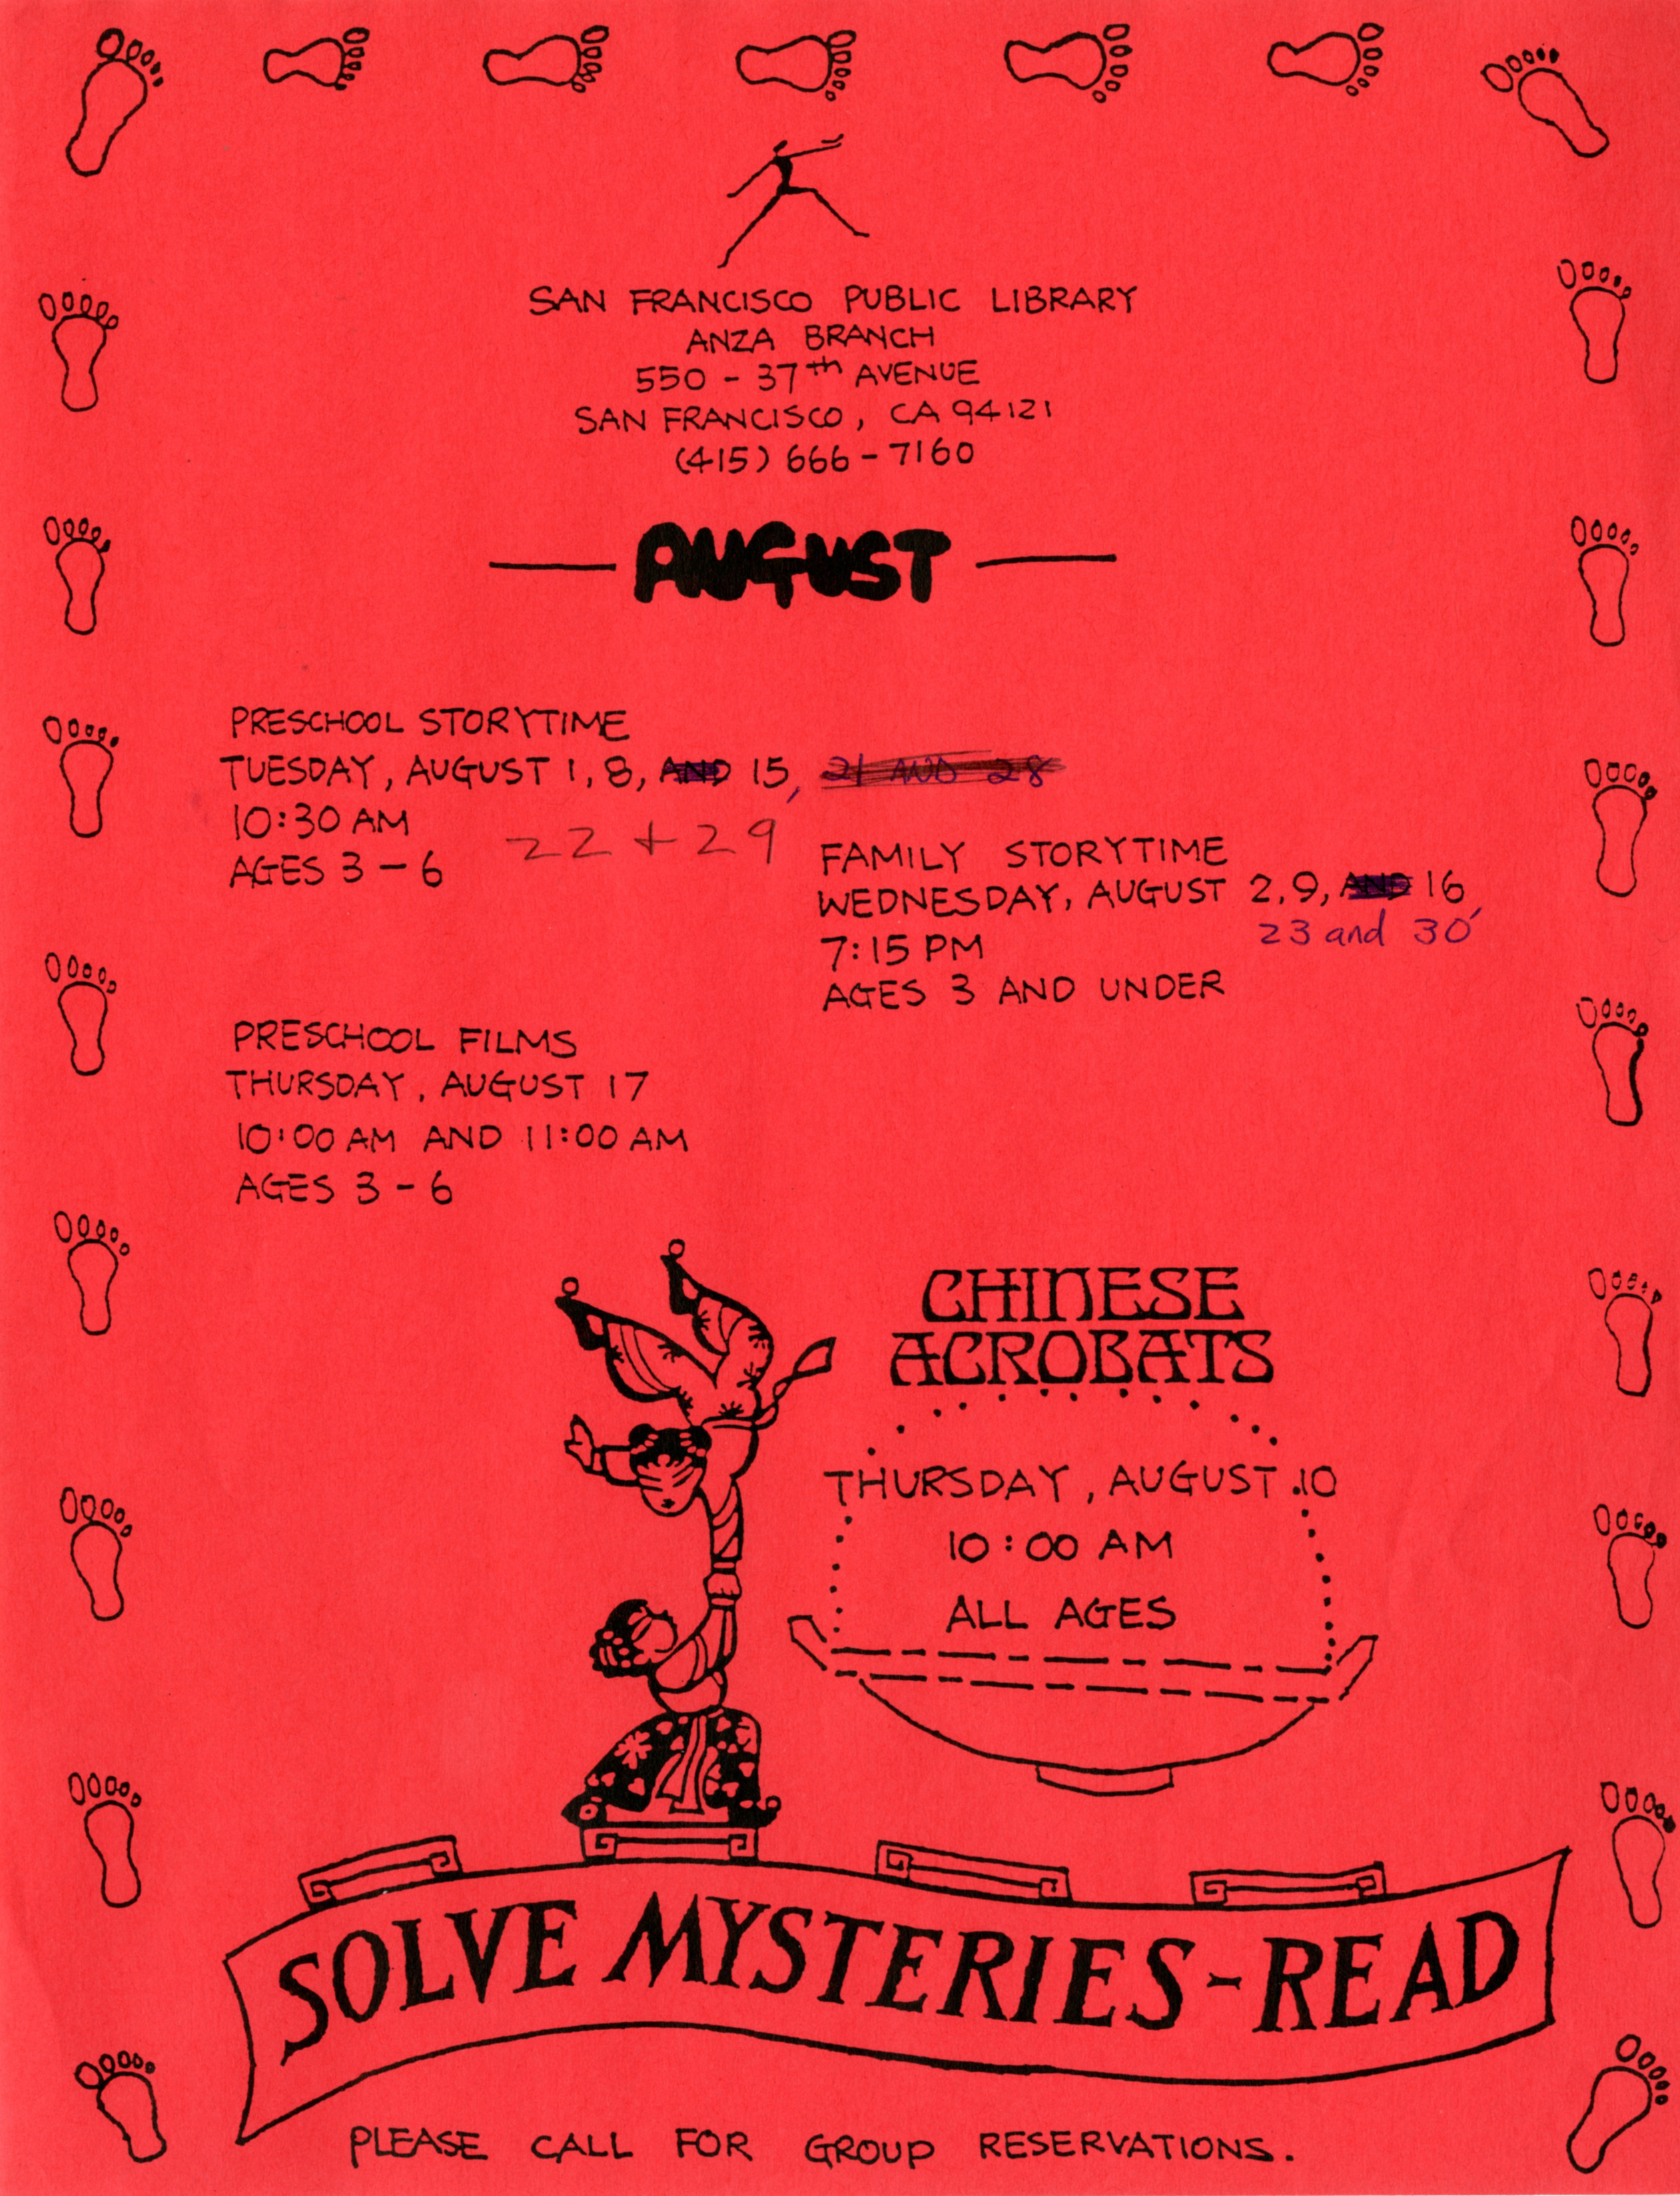 SAN FRANCISCO PUBLIC LIBRARY
ANZA BRANCH
550 - 37th AVENUE
SAN FRANCISCO, CA 94121
(415) 666-7160
AUGUST
PRESCHOOL STORYTIME
TUESDAY, AUGUST 1, 8, AND 15, 21 AND 28
10:30 AM
22 + 29
AGES 3-6
FAMILY STORYTIME
WEDNESDAY, AUGUST 2, 9, AND 16,
23 and 30
7:15 PM
AGES 3 AND UNDER
PRESCHOOL FILMS
THURSDAY, AUGUST 17
10:00 AM AND 11:00 AM
AGES 3-6
CHINESE
ACROBATS
THURSDAY, AUGUST 10
10:00 AM
ALL AGES
SOLVE MYSTERIES-READ
PLEASE CALL FOR GROUP RESERVATIONS.